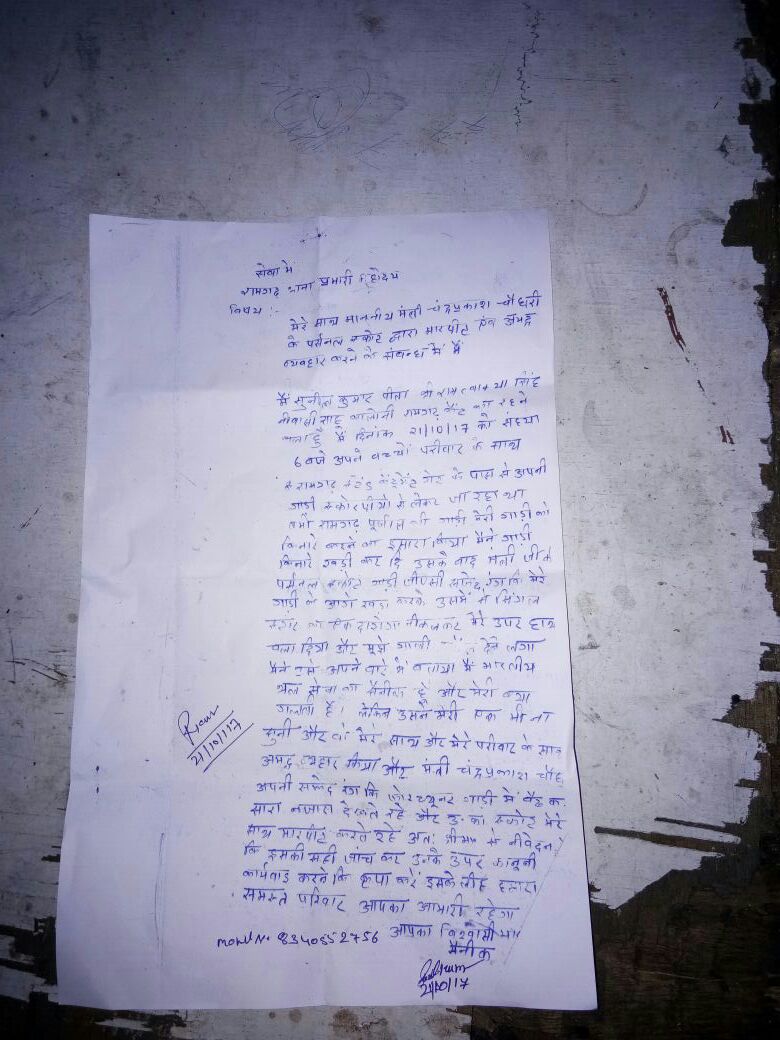 सेवा में
रामगढ़ थाना प्रभारी महोदय
विषय :-
मेरे साथ माननीय मंत्री चंद्रप्रकाश चौधरी
के पर्सनल स्कोट द्वारा मारपीट एंव अभद्र
व्यवहार करने के संबन्ध में में
मैं सुनील कुमार पीता श्री सिंह
नीवासी साहू कालोनी रामगढ़ कैंट का रहने
वाला हूँ मैं दिनांक 21/10/17 को संध्या
6 बजे अपने बच्चों परीवार के साथ
रामगढ़ गेट के पास से अपनी
गाड़ी स्कोरपीयो से लेकर जा रहा था
तभी रामगढ़ पूलीस की गाड़ी मेरी गाड़ी को
किनारे करने का इसारा किया मैने गाड़ी
किनारे खड़ी कर दि उसके बाद मंत्री जी के
पर्सनल स्कोट गाड़ी जीप्सी सफेद रंग कि मेरे
गाड़ी के आगे खड़ा करके उसमें से सिंगल
स्टार का एक दारोगा नीकलकर मेरे उपर हाथ
चला दिया और मूझे गाली देने लगा
मैंने उसे अपने बारे में बताया मैं भारतीय
थल सेना का सैनीक हूँ और मेरी क्या
गलती है। लेकिन उसने मेरी एक भी ना
सुनी और वो मेरे साथ और मेरे परीवार के साथ
अभद्र व्यहार किया और मंत्री चंद्रप्रकाश चौध
अपनी सफेद रंग कि फोरच्यूनर गाड़ी में बैठ क
सारा नजारा देखते रहे और उनका स्कोट मेरे
साथ मारपीट करते रहे अतः श्रीमान से नीवेदन
कि इसकी सही जांच कर उनके उपर कानूनी
कार्यवाई करने कि कृपा करें इसके लीए हमारा
समस्त परिवार आपका आभारी रहेगा
आपका विश्वासी
सैनीक
mobil No 8340552756
21/10/17
21/10/17